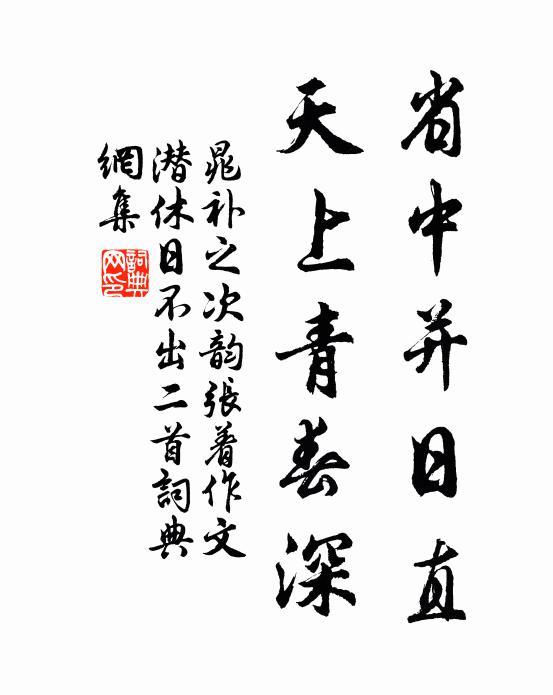 省中并日直
天上青春深
晁补之次韵張着作文
潜休日不出二首詞典
網集
詞典网印